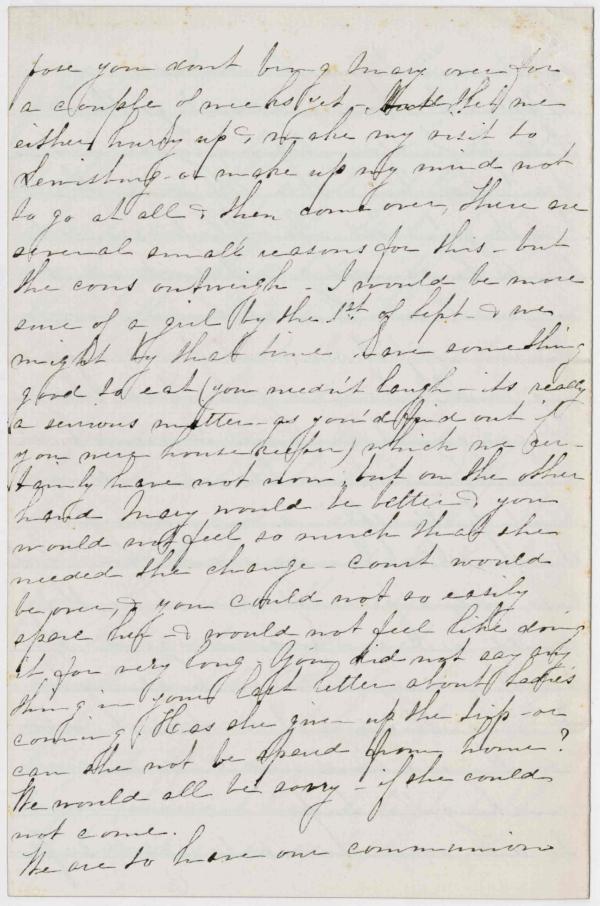 pose you dont bring Mary over for
a couple of weeks yet - let me
either hurry up & make my visit to
Lewisburg - or make up my mind not
to go at all & then come over, There are
several small reasons for this - but
the cons outweigh - I would be more
sure of a girl by the 1st of Sept - & we
might by that time have something
good to eat (you needn't laugh - its really
a serious matter - as you'd find out if
you were housekeeper) which we cer-
tainly have not now, but on the other
hand Mary would be better & you
would not feel so much that she
needed the change - court would
be over, & you could not so easily
spare her - & would not feel like doing
it for very long. You did not say any
thing in your last letter about Sadie's
coming. Has she give up the trip - or
can she not be spared from home?
We would all be sorry - if she could
not come.
We are to have our communion